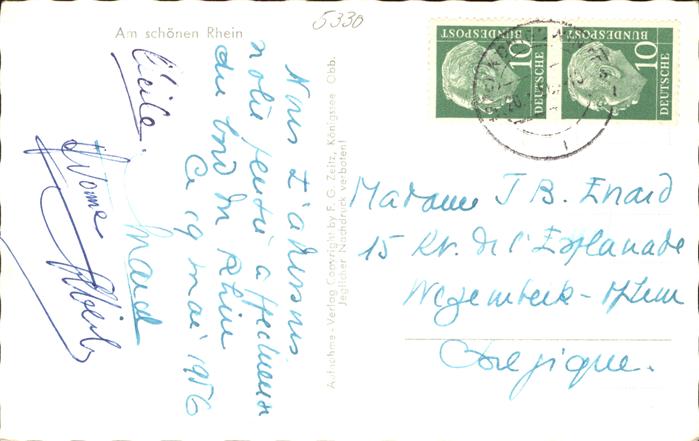 5330
Am schönen Rhein
Nous t'adressons
notre pensée affectueuse
du bord du Rhin
Ce 19 mai 1956
Marcel
Cécile.
Yvonne
Aufnahme-Verlag Copyright by F. G. Zeitz, Königssee Obb.
Jeglicher Nachdruck verboten!
DEUTSCHE
BUNDESPOST
10
DEUTSCHE
BUNDESPOST
10
Madame J B. Enard
15 Av. de l'Esplanade
Wezembeek-
Belgique.